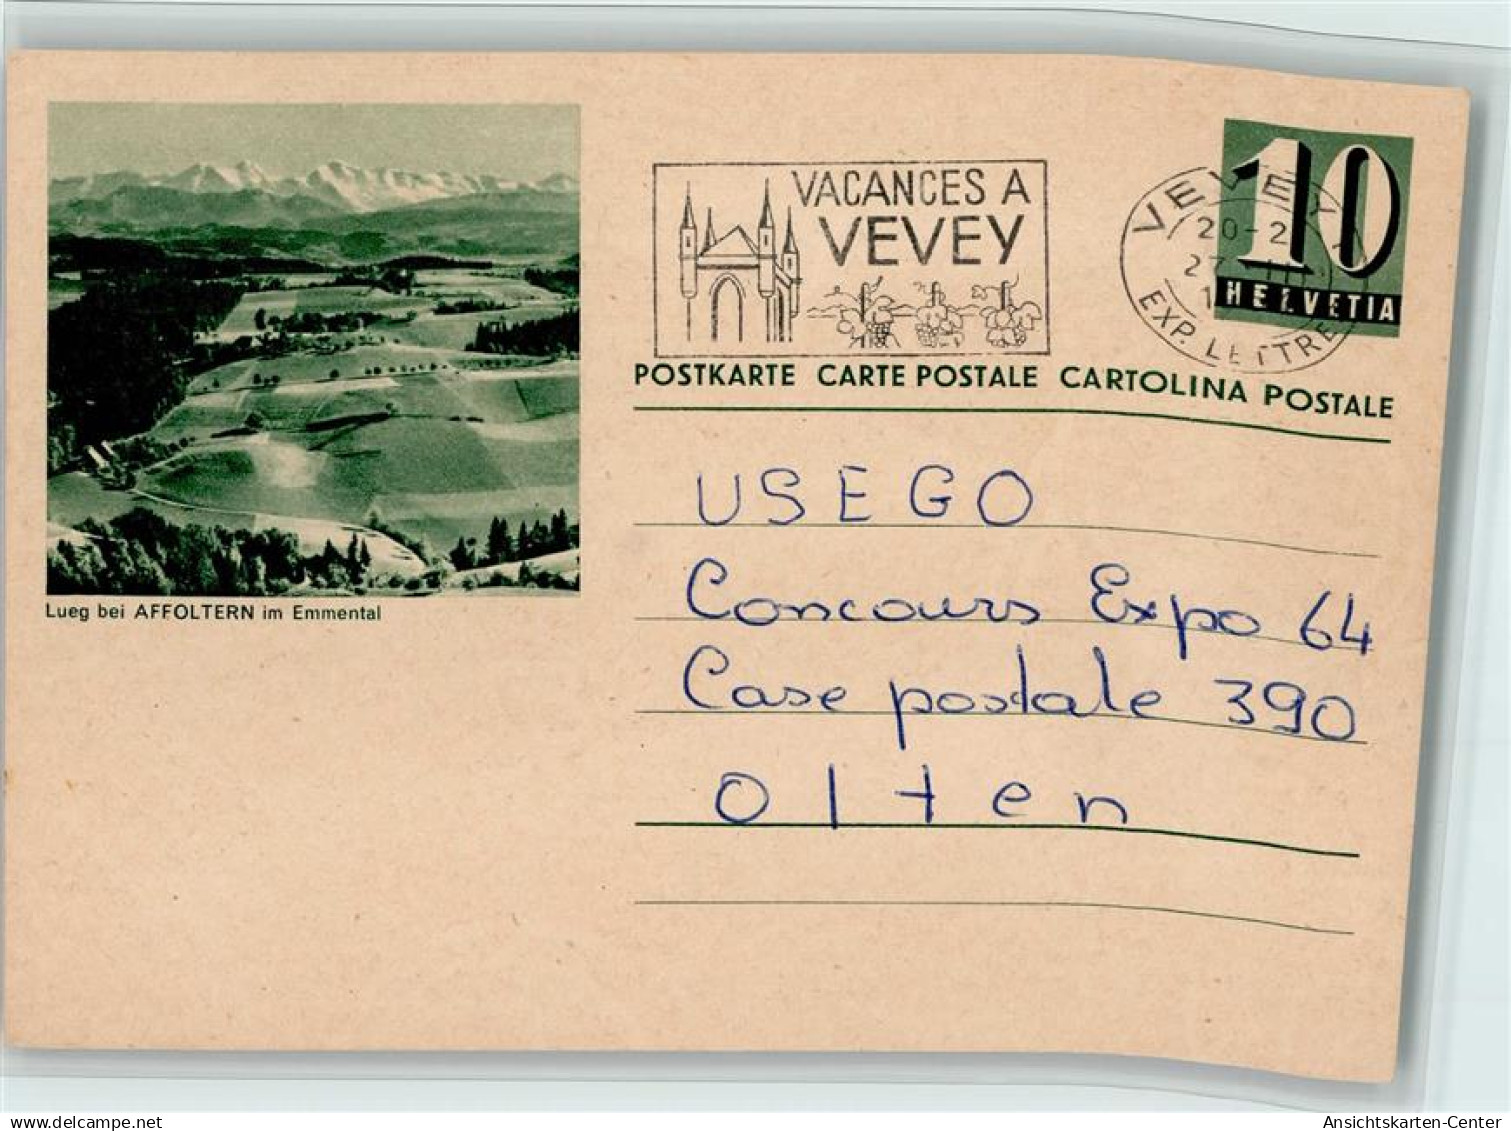 VACANCES A
VEVEY
VEVEY 1
20-2
27
EXP. LETTRE
10
HELVETIA
POSTKARTE CARTE POSTALE CARTOLINA POSTALE
Lueg bei AFFOLTERN im Emmental
USEGO
Concours Expo 64
Case postale 390
Olten
delcampe.net
Ansichtskarten-Center